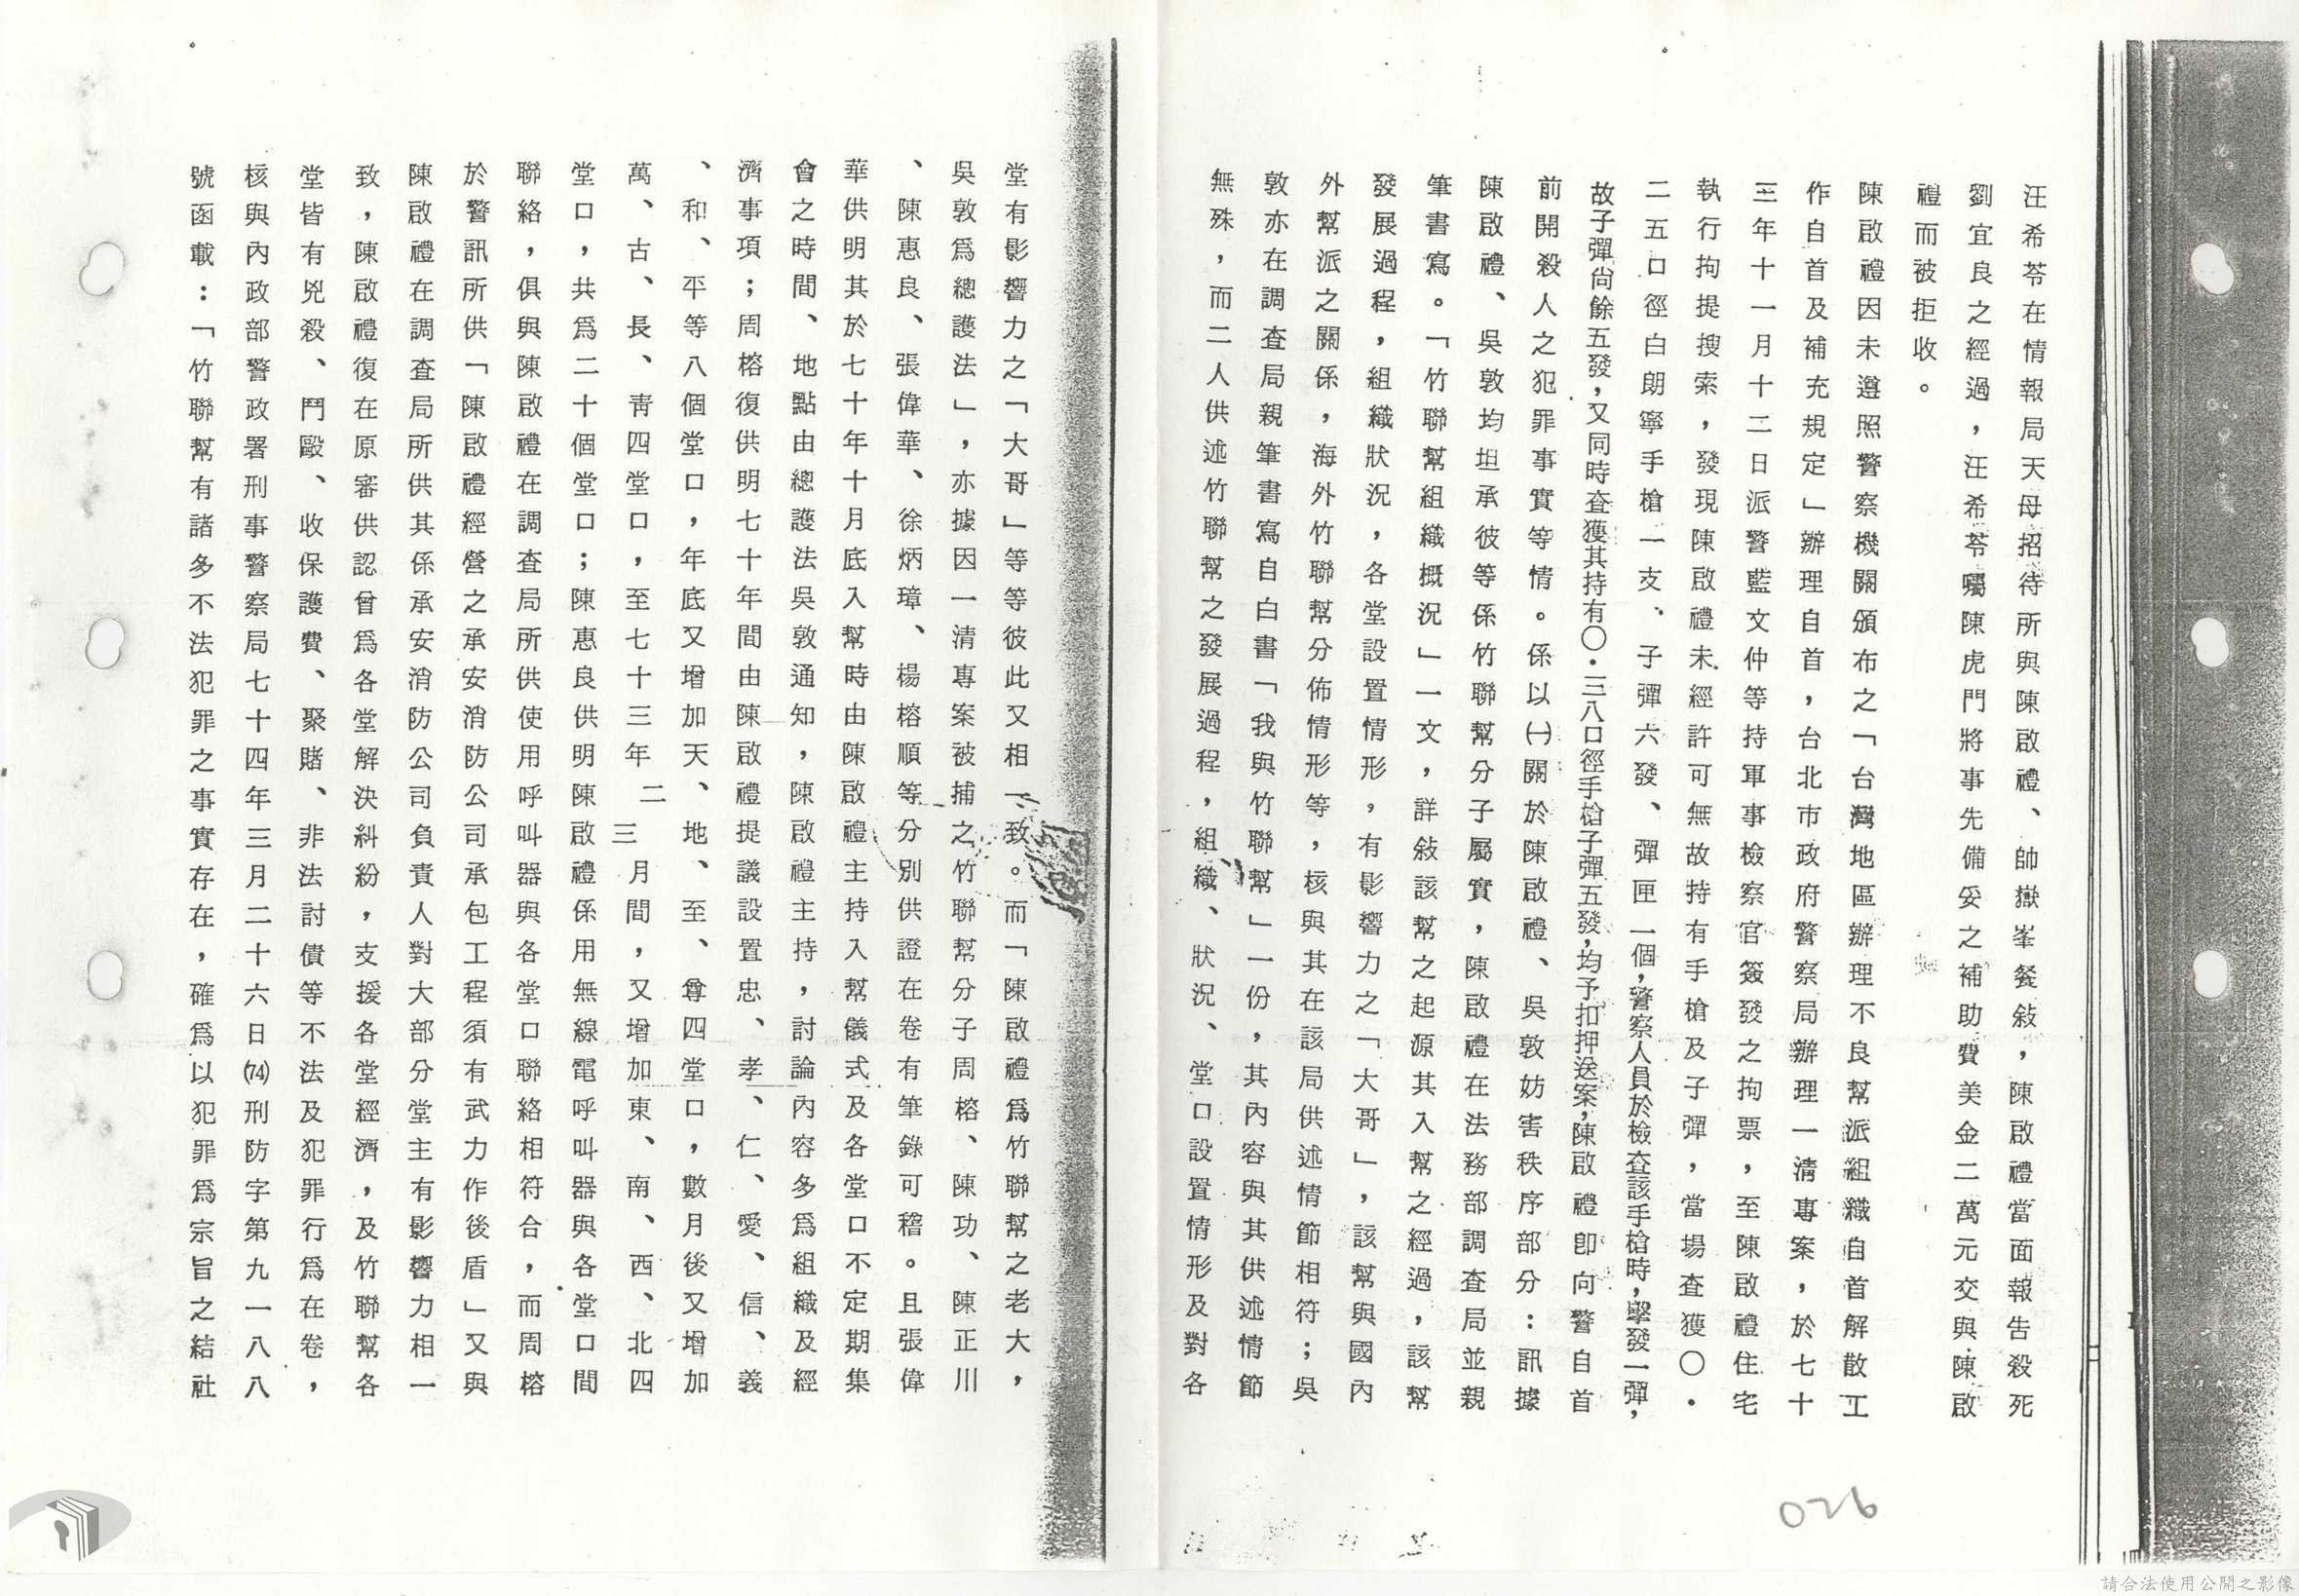 汪希苓在情報局天母招待所與陳啟禮、帥嶽峯餐敍，陳啟禮當面報告殺死
劉宜良之經過，汪希苓囑陳虎門將事先備妥之補助費美金二萬元交與陳啟
禮而被拒收。
陳啟禮因未遵照警察機關頒布之「台灣地區辦理不良幫派組織自首解散工
作自首及補充規定」辦理自首，台北市政府警察局辦理一清專案，於七十
三年十一月十二日派警藍文仲等持軍事檢察官簽發之拘票，至陳啟禮住宅
執行拘提搜索，發現陳啟禮未經許可無故持有手槍及子彈，當場查獲〇．
二五口徑白朗寧手槍一支、子彈六發、彈匣一個，警察人員於檢查該手槍時，擊發一彈，
故子彈尙餘五發，又同時查獲其持有〇．三八口徑手槍子彈五發，均予扣押送案，陳啟禮卽向警自首
前開殺人之犯罪事實等情。係以㈠關於陳啟禮、吳敦妨害秩序部分：訊據
陳啟禮、吳敦均坦承彼等係竹聯幫分子屬實，陳啟禮在法務部調查局並親
筆書寫。「竹聯幫組織概況」一文，詳敍該幫之起源其入幫之經過，該幫
發展過程，組織狀況，各堂設置情形，有影響力之「大哥」，該幫與國內
外幫派之關係，海外竹聯幫分佈情形等，核與其在該局供述情節相符；吳
敦亦在調查局親筆書寫自白書「我與竹聯幫」一份，其內容與其供述情節
無殊，而二人供述竹聯幫之發展過程，組織、狀況、堂口設置情形及對各
堂有影響力之「大哥」等等彼此又相一致。而「陳啟禮爲竹聯幫之老大，
吳敦爲總護法」，亦據因一清專案被捕之竹聯幫分子周榕、陳功、陳正川
、陳惠良、張偉華、徐炳璋、楊榕順等分別供證在卷有筆錄可稽。且張偉
華供明其於七十年十月底入幫時由陳啟禮主持入幫儀式及各堂口不定期集
會之時間、地點由總護法吳敦通知，陳啟禮主持，討論內容多爲組織及經
濟事項；周榕復供明七十年間由陳啟禮提議設置忠、孝、仁、愛、信、義
、和、平等八個堂口，年底又增加天、地、至、尊四堂口，數月後又增加
萬、古、長、靑四堂口，至七十三年二三月間，又增加東、南、西、北四
堂口，共爲二十個堂口；陳惠良供明陳啟禮係用無線電呼叫器與各堂口間
聯絡，俱與陳啟禮在調查局所供使用呼叫器與各堂口聯絡相符合，而周榕
於警訊所供「陳啟禮經營之承安消防公司承包工程須有武力作後盾」又與
陳啟禮在調查局所供其係承安消防公司負責人對大部分堂主有影響力相一
致，陳啟禮復在原審供認曾爲各堂解決糾紛，支援各堂經濟，及竹聯幫各
堂皆有兇殺、鬥毆、收保護費、聚賭、非法討債等不法及犯罪行爲在卷，
核與內政部警政署刑事警察局七十四年三月二十六日(74)刑防字第九一八八
號函載：「竹聯幫有諸多不法犯罪之事實存在，確爲以犯罪爲宗旨之結社
026
請合法使用公開之影像